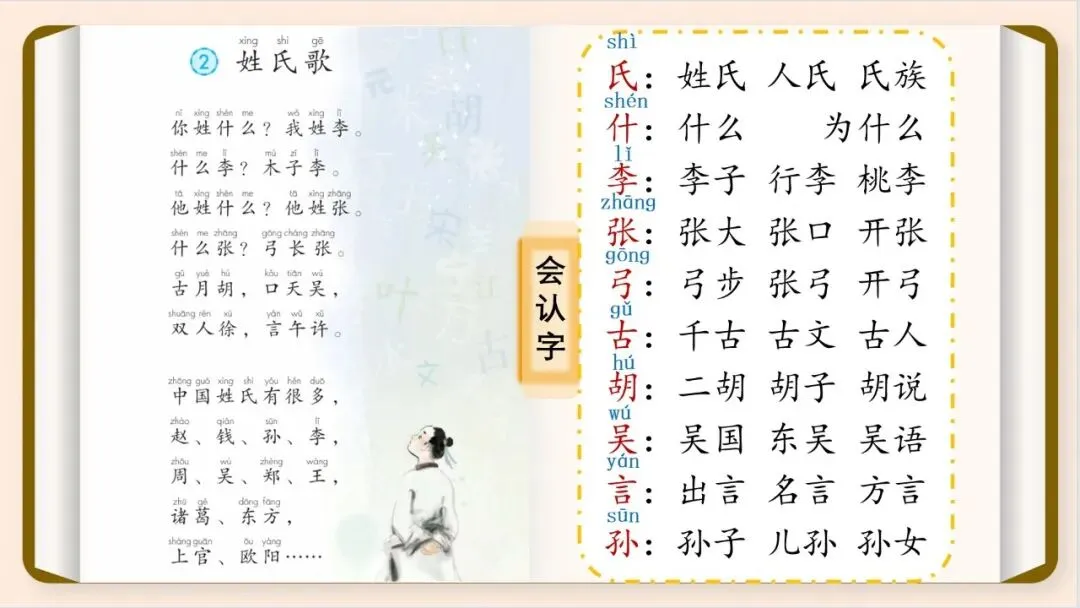 xìng shì gē
2 姓氏歌
nǐ xìng shén me wǒ xìng lǐ
你姓什么？我姓李。
shén me lǐ mù zǐ lǐ
什么李？木子李。
tā xìng shén me tā xìng zhāng
他姓什么？他姓张。
shén me zhāng gōng cháng zhāng
什么张？弓长张。
gǔ yuè hú kǒu tiān wú
古月胡，口天吴，
shuāng rén xú yán wǔ xǔ
双人徐，言午许。
zhōng guó xìng shì yǒu hěn duō
中国姓氏有很多，
zhào qián sūn lǐ
赵、钱、孙、李，
zhōu wú zhèng wáng
周、吴、郑、王，
zhū gě dōng fāng
诸葛、东方，
shàng guān ōu yáng
上官、欧阳……
会认字
shì
氏：姓氏 人氏 氏族
shén
什：什么 为什么
lǐ
李：李子 行李 桃李
zhāng
张：张大 张口 开张
gōng
弓：弓步 张弓 开弓
gǔ
古：千古 古文 古人
hú
胡：二胡 胡子 胡说
wú
吴：吴国 东吴 吴语
yán
言：出言 名言 方言
sūn
孙：孙子 儿孙 孙女
元
胡
宋
叶
古
文